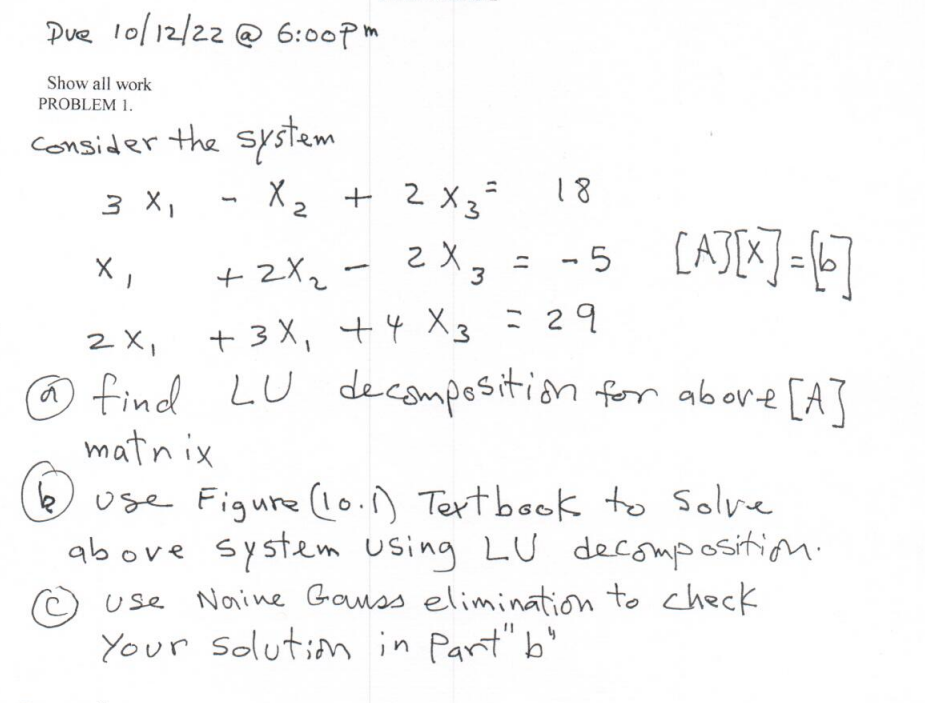 Due 10/12/22 @ 6:00pm
Show all work
PROBLEM 1.
Consider the system
3 X₁ - X₂ + 2 X₃ = 18
X₁ + 2X₂ - 2X₃ = -5 [A][X]=[b]
2X₁ + 3X₁ + 4 X₃ = 29
ⓐ find LU decomposition for above [A]
matrix
ⓑ use Figure (10.1) Textbook to Solve
above system using LU decomposition.
ⓒ use Naive Gauss elimination to check
Your solution in Part "b"